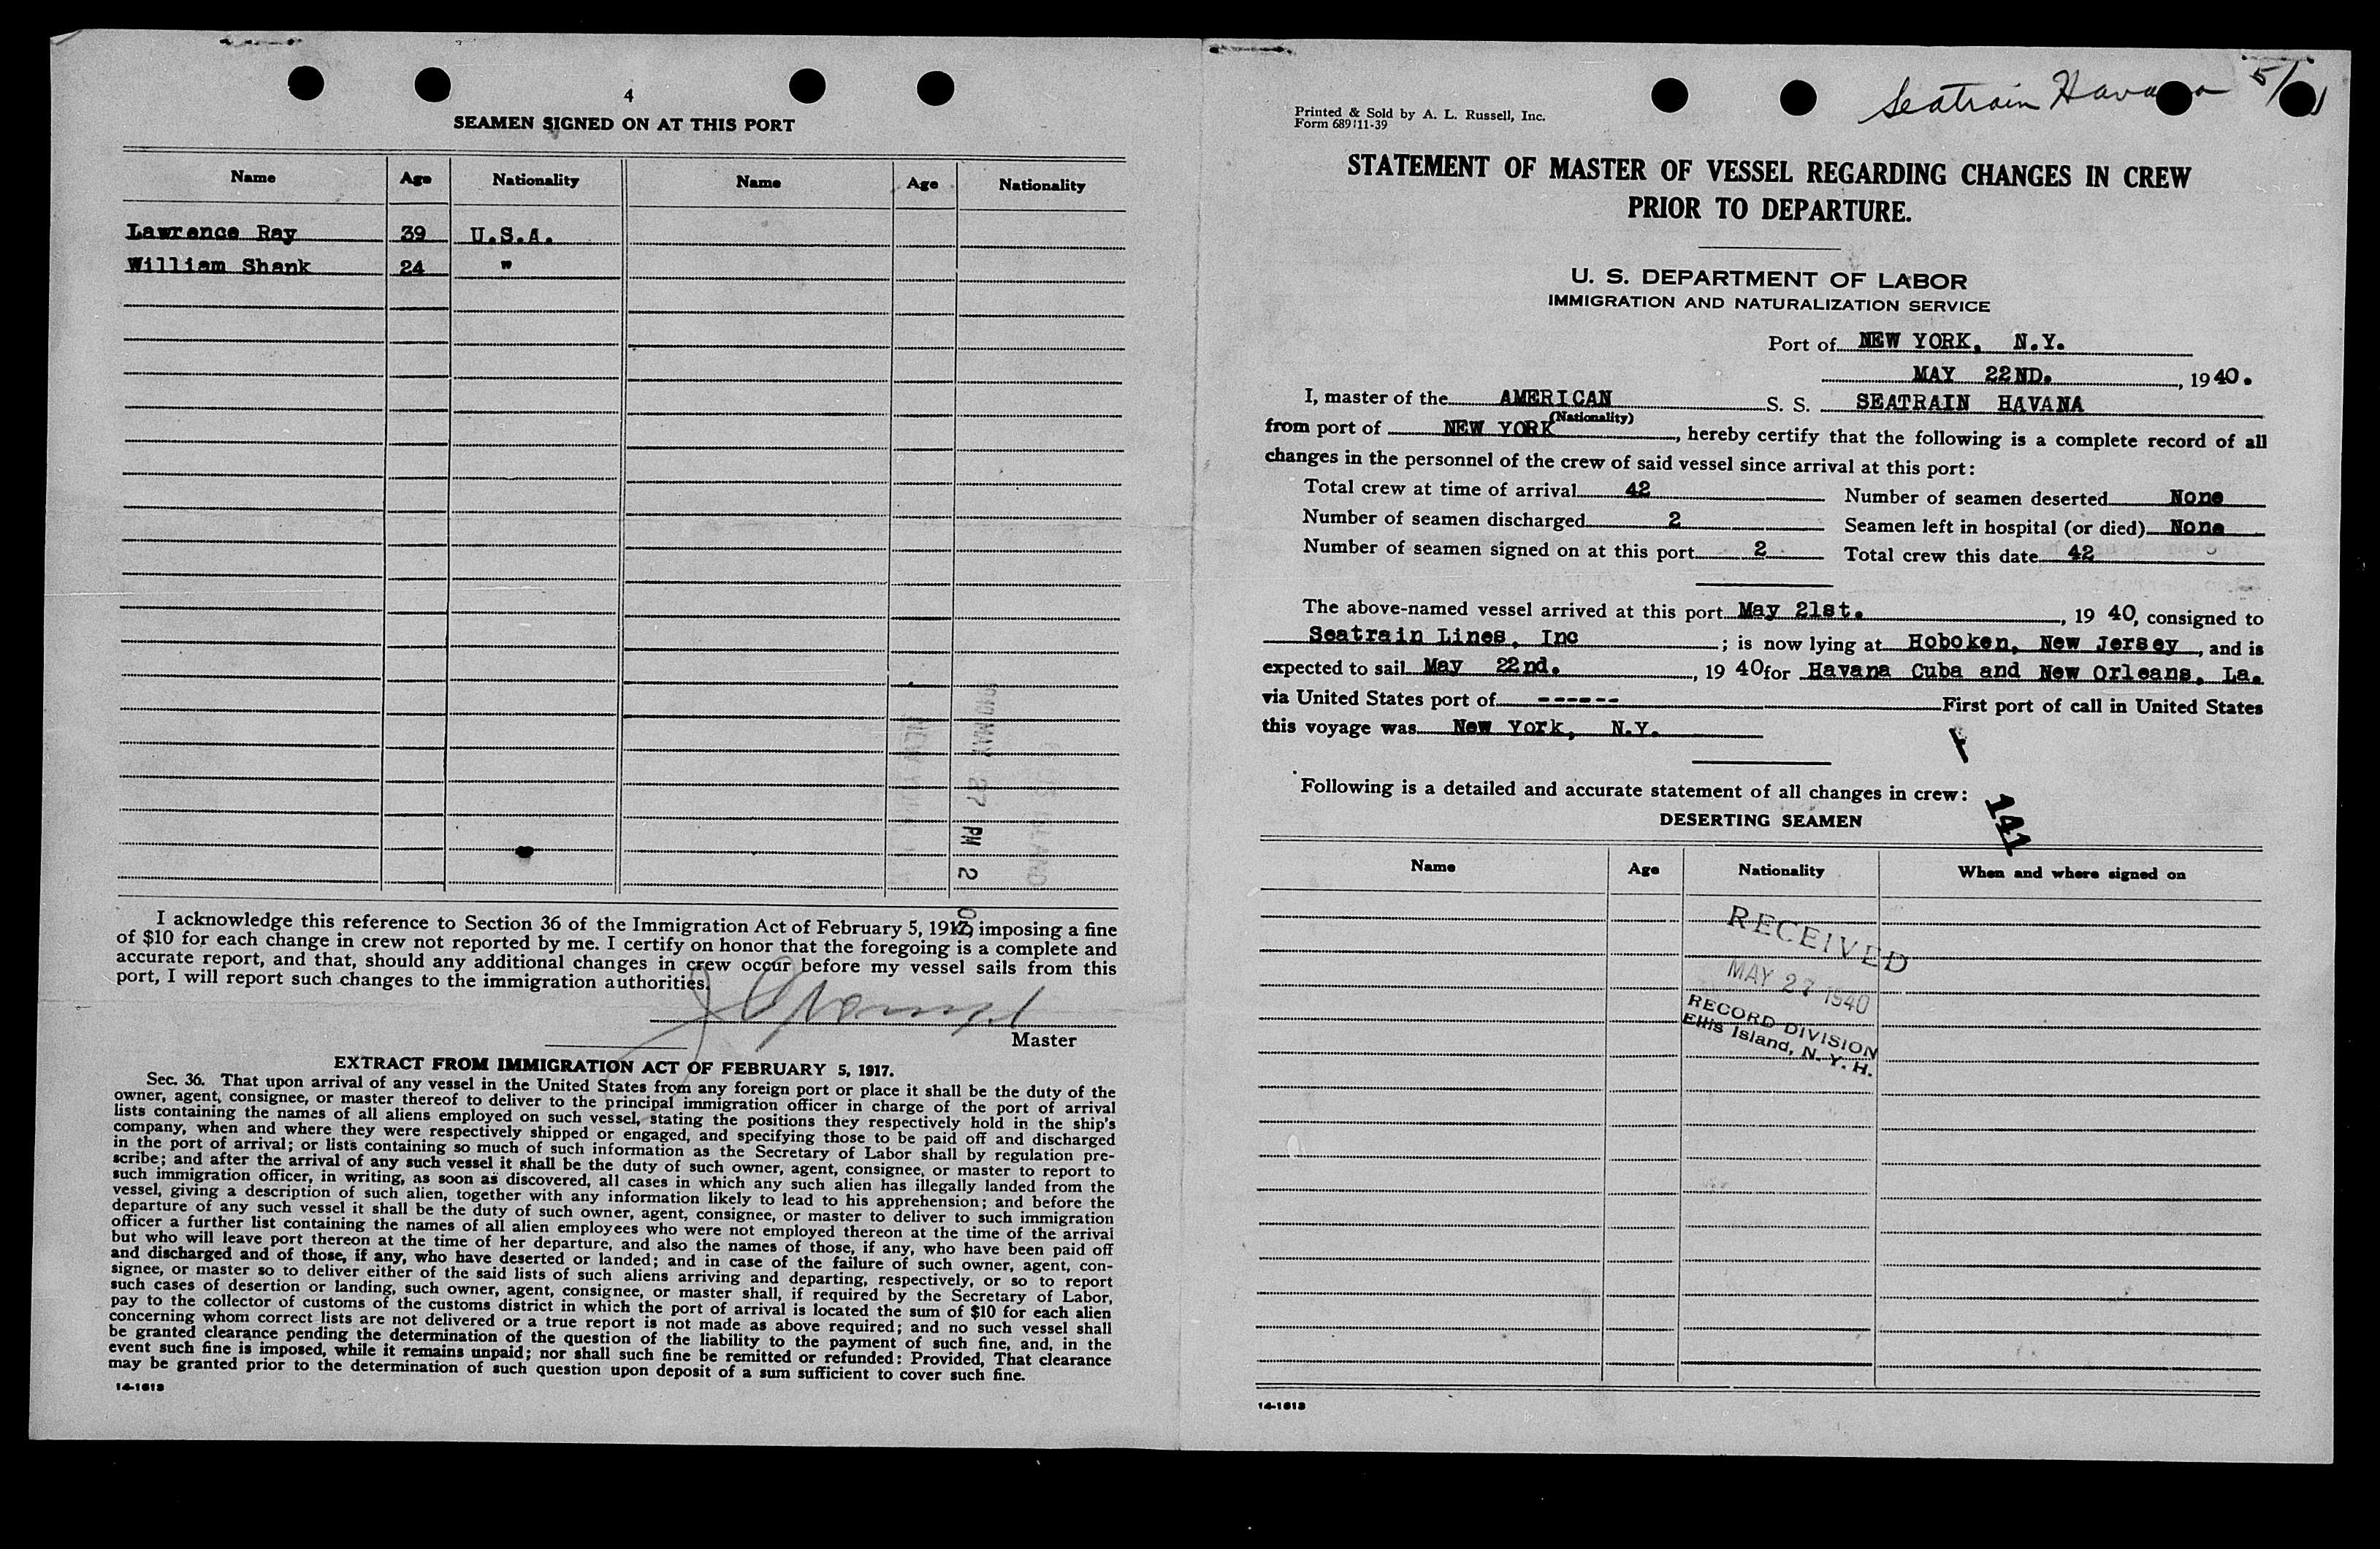 4
SEAMEN SIGNED ON AT THIS PORT
Name Age Nationality Name Age Nationality
Lawrence Ray 39 U.S.A.
William Shank 24 "
I acknowledge this reference to Section 36 of the Immigration Act of February 5, 1917, imposing a fine
of $10 for each change in crew not reported by me. I certify on honor that the foregoing is a complete and
accurate report, and that, should any additional changes in crew occur before my vessel sails from this
port, I will report such changes to the immigration authorities.
Master
EXTRACT FROM IMMIGRATION ACT OF FEBRUARY 5, 1917.
Sec. 36. That upon arrival of any vessel in the United States from any foreign port or place it shall be the duty of the
owner, agent, consignee, or master thereof to deliver to the principal immigration officer in charge of the port of arrival
lists containing the names of all aliens employed on such vessel, stating the positions they respectively hold in the ship's
company, when and where they were respectively shipped or engaged, and specifying those to be paid off and discharged
in the port of arrival; or lists containing so much of such information as the Secretary of Labor shall by regulation pre-
scribe; and after the arrival of any such vessel it shall be the duty of such owner, agent, consignee, or master to report to
such immigration officer, in writing, as soon as discovered, all cases in which any such alien has illegally landed from the
vessel, giving a description of such alien, together with any information likely to lead to his apprehension; and before the
departure of any such vessel it shall be the duty of such owner, agent, consignee, or master to deliver to such immigration
officer a further list containing the names of all alien employees who were not employed thereon at the time of the arrival
but who will leave port thereon at the time of her departure, and also the names of those, if any, who have been paid off
and discharged and of those, if any, who have deserted or landed; and in case of the failure of such owner, agent, con-
signee, or master so to deliver either of the said lists of such aliens arriving and departing, respectively, or so to report
such cases of desertion or landing, such owner, agent, consignee, or master shall, if required by the Secretary of Labor,
pay to the collector of customs of the customs district in which the port of arrival is located the sum of $10 for each alien
concerning whom correct lists are not delivered or a true report is not made as above required; and no such vessel shall
be granted clearance pending the determination of the question of the liability to the payment of such fine, and, in the
event such fine is imposed, while it remains unpaid; nor shall such fine be remitted or refunded: Provided, That clearance
may be granted prior to the determination of such question upon deposit of a sum sufficient to cover such fine.
14-1613
Seatrain Havana 5/
Printed & Sold by A. L. Russell, Inc.
Form 689 11-39
STATEMENT OF MASTER OF VESSEL REGARDING CHANGES IN CREW
PRIOR TO DEPARTURE.
U. S. DEPARTMENT OF LABOR
IMMIGRATION AND NATURALIZATION SERVICE
Port of NEW YORK, N.Y.
MAY 22ND. , 19 40.
I, master of the AMERICAN S. S. SEATRAIN HAVANA
(Nationality)
from port of NEW YORK , hereby certify that the following is a complete record of all
changes in the personnel of the crew of said vessel since arrival at this port:
Total crew at time of arrival 42 Number of seamen deserted None
Number of seamen discharged 2 Seamen left in hospital (or died) None
Number of seamen signed on at this port 2 Total crew this date 42
The above-named vessel arrived at this port May 21st. , 19 40, consigned to
Seatrain Lines, Inc ; is now lying at Hoboken, New Jersey , and is
expected to sail May 22nd. , 19 40 for Havana Cuba and New Orleans, La.
via United States port of ------ First port of call in United States
this voyage was New York, N.Y.
Following is a detailed and accurate statement of all changes in crew:
141
DESERTING SEAMEN
Name Age Nationality When and where signed on
RECEIVED
MAY 27 1940
RECORD DIVISION
Ellis Island, N. Y. H.
14-1613